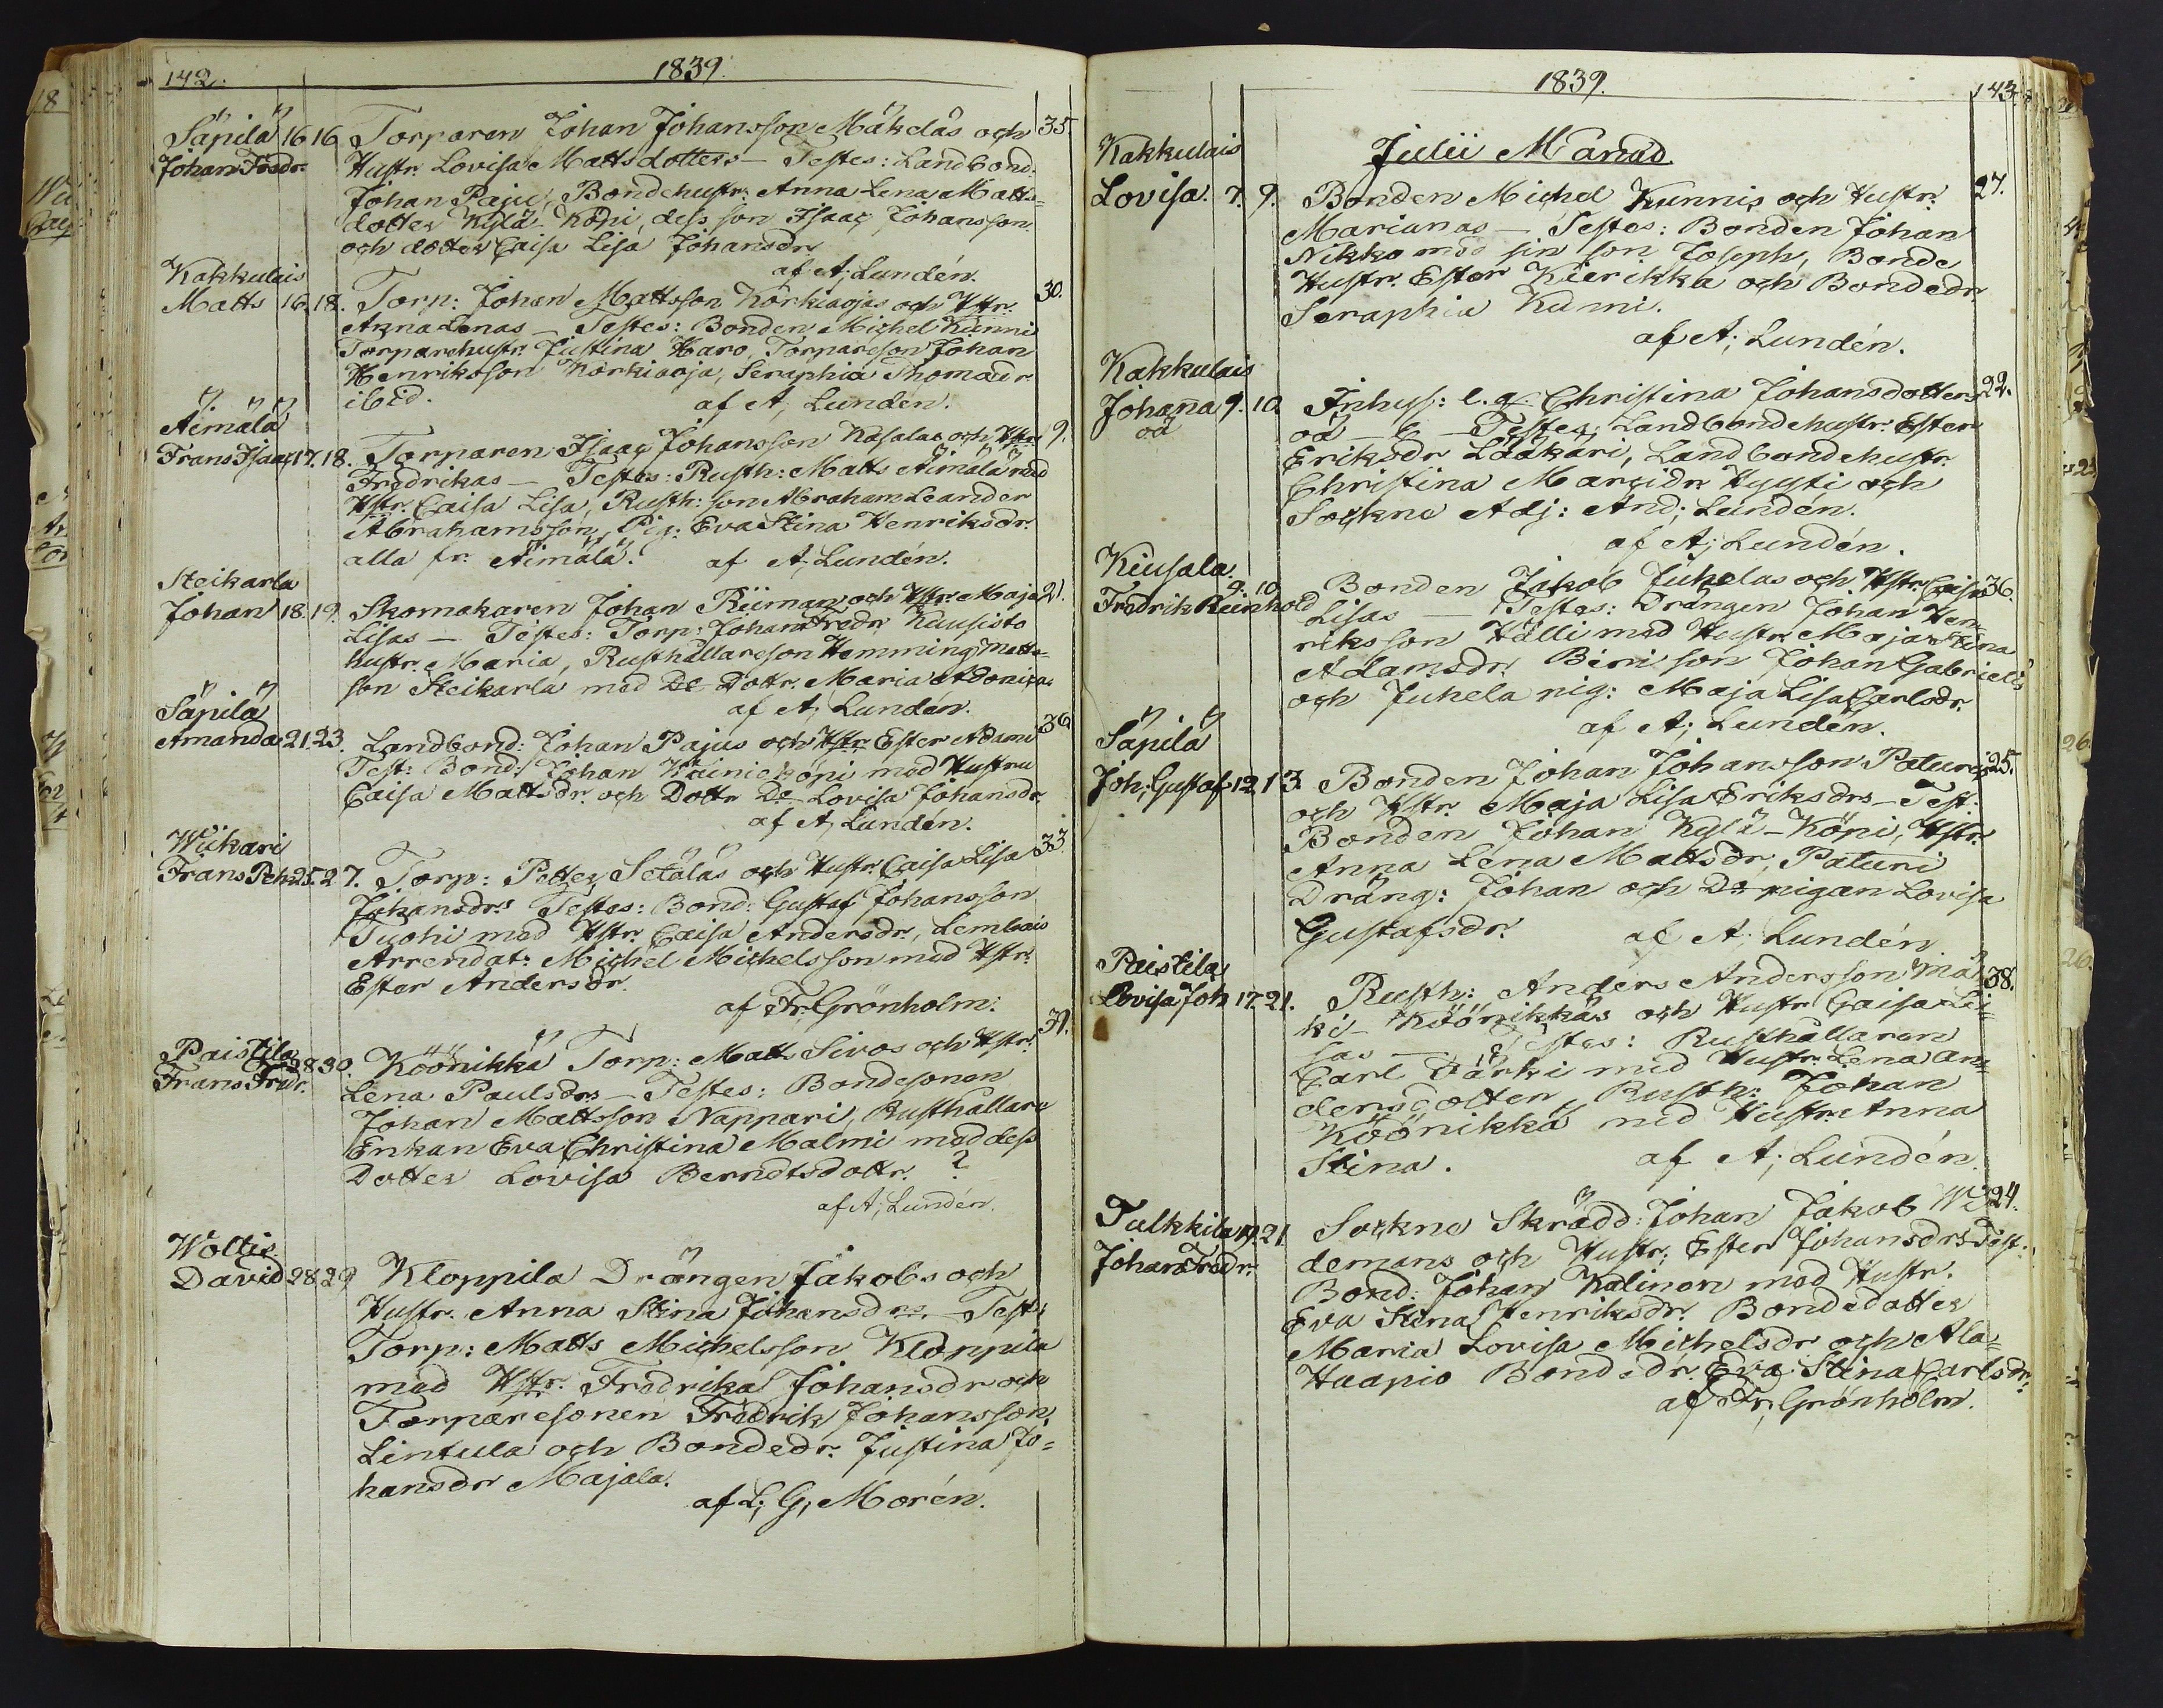 142.
1839.
Säpilä 16 16 Torparen Johan Johansson Mäkeläs och 35.
Johan Fredr. Hustr. Lovisa Mattsdotters – Testes: Landbond.
Johan Paju, Bondehustr. Anna Lena Matts=
dotter Kylä-Köpi, dess son Isaac Johansson
och dotter Caisa Lisa Johansdr.
af A; Lundén.
Kakkulais
Matts 16. 18. Torp: Johan Mattsson Korkiaojas och Hstr. 30.
Anna Lenas – Testes: Bonden Michel Kunni
Torparehustr. Justina Haro, Torpareson Johan
Henriksson Korkiaoja, Seraphia Thomasdr.
ibid. af A; Lundén.
Äimälä
Frans Isaac 17. 18. Torparen Isaac Johansson Kasalas och Hstr. 9.
Fredrikas – Testes: Rusth: Matts Äimälä med
Hstr. Caisa Lisa, Rusth: son Abraham Leander
Abrahamsson, Pig: Eva Stina Henriksdr.
alla fr. Äimälä. af A; Lundén.
Steikarla
Johan 18. 19. Skomakaren Johan Riiman och Hstr. Maja 21.
Lisas – Testes: Torp: Johan Fredr. Kuusisto
hustr. Maria, Rusthållareson Hemming Matts=
son Steikarla med Do Dottr. Maria Adonica
af A; Lundén.
Säpilä
Amanda 21. 23. Landbond: Johan Pajus och Hstr. Ester Adami 36
Test: Bond: Johan Wäinieköpi med Hustru
Caisa Mattsdr. och Dottr Do Lovisa Johansdr.
af A; Lundén.
Wiikari
Frans Petr. 25. 27. Torp: Petter Setäläs och Hustr. Caisa Lisa 33
Johansdrs Testes: Bond: Gustaf Johansson
Tuohi med Hstr. Caisa Andersdr., Lembois
Arrendat: Michel Michelsson med Hstr.
Ester Andersdr.
af Fr. Grönholm.
Paistila
Frans Fredr. 28 30. Köönikkä Torp: Matts Sivos och Hstr. 31.
Lena Paulsdrs – Testes: Bondesonen
Johan Mattsson Nappari, Rusthållare
Enkan Eva Christina Malmi med dess
Dotter Lovisa Berndtsdottr. ?
af A; Lundén.
Woltis
David 28. 29 Kloppila Drängen Jakobs och
Hustr. Anna Stina Johansdrs. – Test:
Torp: Matts Michelsson Kloppila
med Hstr. Fredrika Johansdr och
Torparesonen Fredrik Johansson
Lintula och Bondedr. Justina Jo=
hansdr Majala.
af L; G; Morén.
1839.
143.
Julii Månad.
Kakkulais
Lovisa. 7. 9. Bonden Michel Kunnis och Hustr. 27.
Marianas – Testes: Bonden Johan
Nikko med sin son Joseph, Bonde
Hustr. Ester Kierikka och Bondedr
Seraphia Kumi.
af A; Lundén.
Kakkulais
Johanna 9. 10. Inhys: l. q. Christina Johansdotters 22.
oä oä – b – Testes: Landbondehustr. Ester
Eriksdr Lääkäri, Landbondehustr.
Christina Marcidr Hygti och
Sockne Adj: And; Lundén.
af A; Lundén.
Kiusala.
Fredrik Reinhold 9. 10 Bonden Jakob Juhelas och Hstr. Caisa 36.
Lisas – Testes: Drängen Johan Hen
riksson Hälli med Hustr. Maja Stina
Adamsdr. Biri son Johan Gabriels
och Juhela pig: Maja Lisa Carlsdr.
af A; Lundén.
Säpilä
Joh; Gustaf 12. 13. Bonden Johan Johansson Paturis 25.
och Hstr. Maja Lisa Eriksdrs – Test:
Bonden Johan Kylä-Köpi, Hstr.
Anna Lena Mattsdr, Paturi
Dräng: Johan och Do pigan Lovisa
Gustafsdr. af A; Lundén
Paistila
Lovisa Joh 17. 21. Rusth: Anders Andersson Mä 38.
ki-Köönikkäs och Hustr. Caisa Li=
sas – Testes: Rusthållaren
Carl Pärki med Hustr. Lena An=
dersdotter, Rusth: Johan
Köönikkä med Hustr. Anna
Stina. af A; Lundén.
Tulkkila 19. 21 Sockne Skrädd: Johan Jakob We 24.
Johan Fredr. demans och Hustr. Ester Johansdrs Test:
Bond: Johan Kalinen med Hustr.
Eva Stina Henriksdr. Bondedotter
Maria Lovisa Michelsdr och Ala=
Haapio Bondedr. Eva Stina Carlsdr.
af Fr; Grönholm.